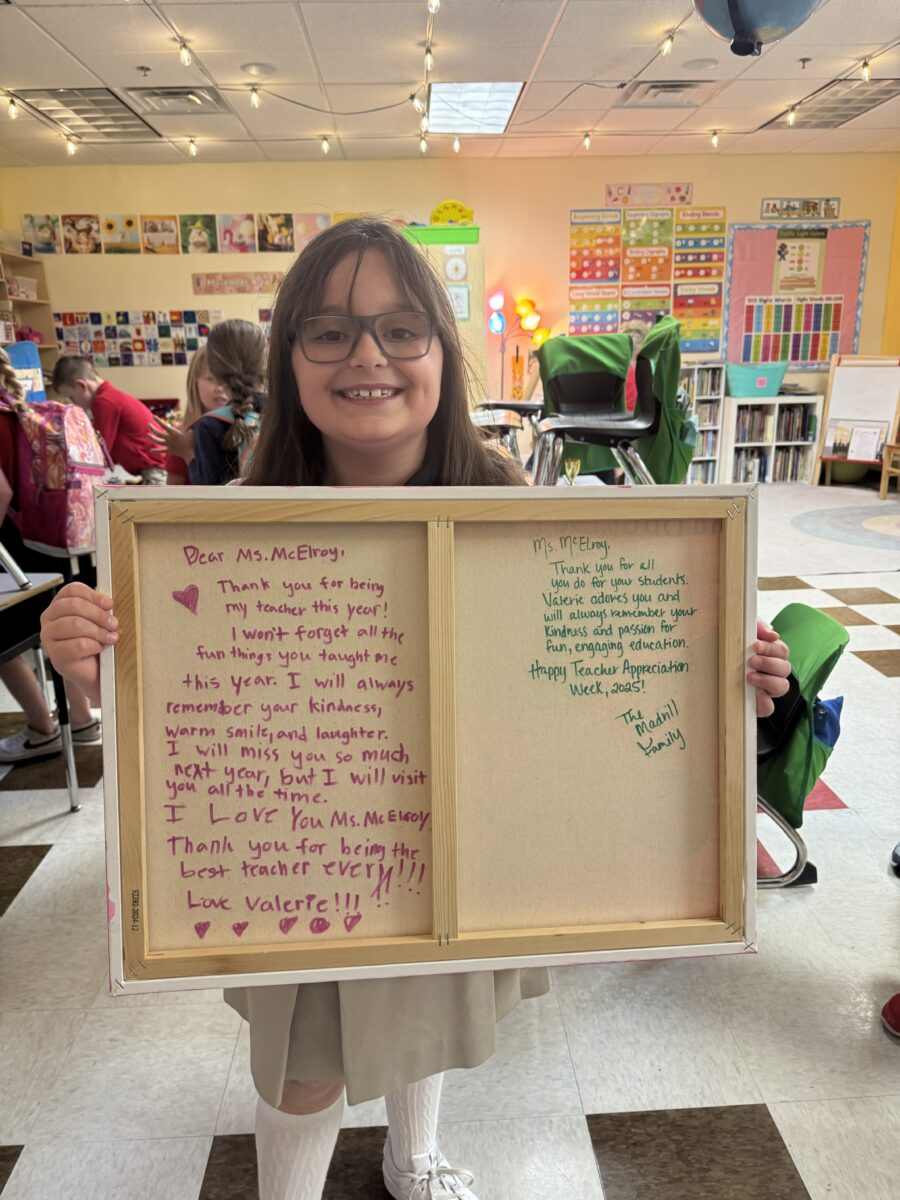 Beginning Blends
Beginning Digraphs
Ending Blends
Dear Ms. McElroy,
Thank you for being
my teacher this year!
I won't forget all the
fun things you taught me
this year. I will always
remember your kindness,
warm smile, and laughter.
I will miss you so much
next year, but I will visit
you all the time.
I Love You Ms. McElroy
Thank you for being the
best teacher ever!!!!!
Love Valerie!!!
Ms. McElroy,
Thank you for all
you do for your students.
Valerie adores you and
will always remember your
kindness and passion for
fun, engaging education.
Happy Teacher Appreciation
Week, 2025!
The
Madrill
Family